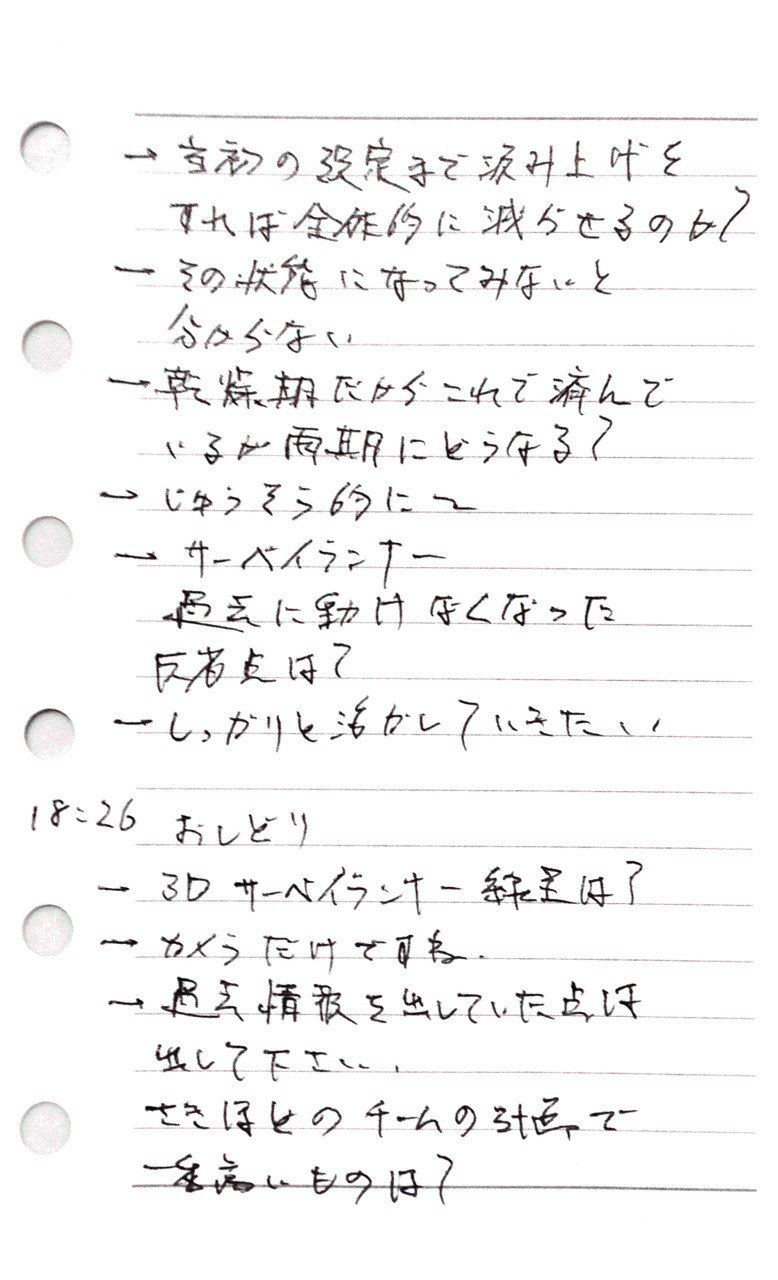 → 当初の設定まで汲み上げを
すれば全体的に減らせるのか?
→ その状態になってみないと
分からない
→ 乾燥期だからこれで済んで
いるが雨期にどうなる?
→ じゅうそう的に〜
→ サーベイランナー
過去に動けなくなった
反省点は?
→ しっかりと活かしていきたい
18:26 おしどり
→ 3Dサーベイランナー線量は?
→ カメラだけですね.
→ 過去情報を出していた点は
出して下さい.
さきほどのチームの計画で
一番高いものは?